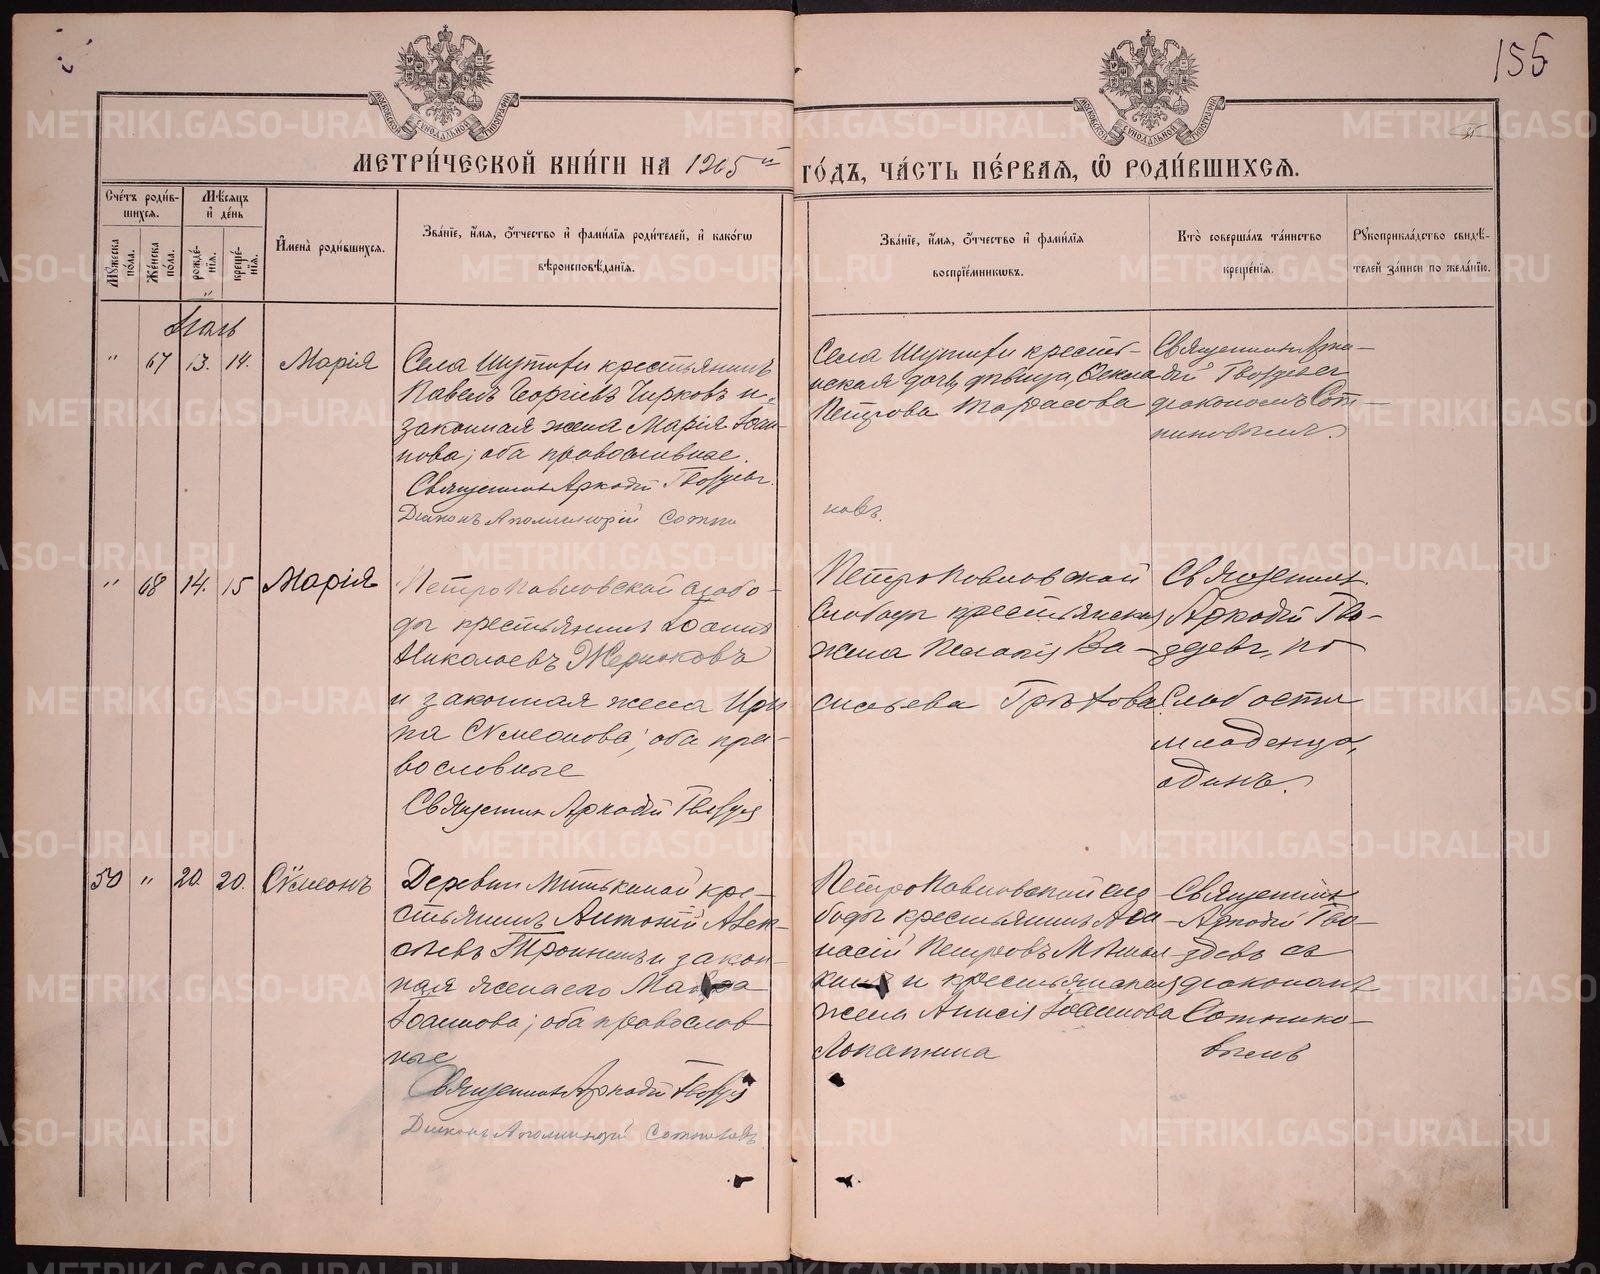 155
МЕТРИ́ЧЕСКОЙ КНИ́ГИ НА 1905й ГО́ДЪ, ЧА́СТЬ ПЕ́РВАЯ, Ѡ РОДИ́ВШИХСѦ.
Сче́тъ роди́в-
шихся.
Мѣсяцъ
и҆ де́нь
Мꙋжеска по́ла.
Же́нска по́ла.
рожде́-нїя.
креще́-нїя.
И҆мена̀ роди́вшихся.
Зва́нїе, и҆́мя, ѻ҆́тчество и҆ фами́лїя роди́телей, и҆ како́гѡ
вѣроисповѣ́данїя.
Зва́нїе, и҆́мя, ѻ҆́тчество и҆ фами́лїя
воспрїе́мникѡвъ.
Кто̀ соверша́лъ та́инство
креще́нїя.
Рꙋкоприкла́дство свидѣ́-
телей за́писи по жела́нїю.
"
67
13.
14.
Марія
Села Шутихи крестьянинъ
Павелъ Георгіевъ Чирковъ и
законная жена Марія Іоан-
нова; оба православные.
Священникъ Аркадій Гвоздевъ.
Діаконъ Аполлинарій Сотни
Села Шутихи кресть-
янская дочь девица,
Петрова Тарасова
ковъ.
Священникъ Арка-
дій Гвоздевъ съ
діакономъ Сот-
никовымъ.
"
68
14.
15
Марія
Петропавловской слобо-
ды крестьянинъ Іоаннъ
Николаевъ
и законная жена Ири
на Сѵмеонова; оба пра-
вославные
Священникъ Аркадій Гвоздевъ
Петропавловской
Слободы крестьянская
жена Пелагія Ва-
сильева Грѣхова
Священникъ
Аркадій Гво-
здевъ, по
слабости
младенца,
одинъ.
50
"
20.
20.
Сѵмеонъ
Деревни Митькиной кре-
стьянинъ Антоній Алек-
сѣевъ Тронинъ и закон-
ная жена его
Іоаннова; оба православ
ные
Священникъ Аркадій Гвоздевъ
Діаконъ Аполлинарій Сотниковъ
Петропавловской сло
боды крестьянинъ Афа-
насій Петровъ
и крестьянская
жена Анисія Іоаннова
Лопатина
Священникъ
Аркадій Гво-
здевъ съ
діакономъ
Сотнико-
вымъ
METRIKI.GASO-URAL.RU